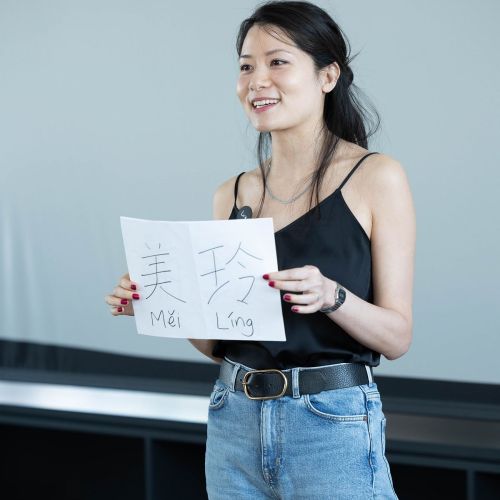 美玲
Měi Líng